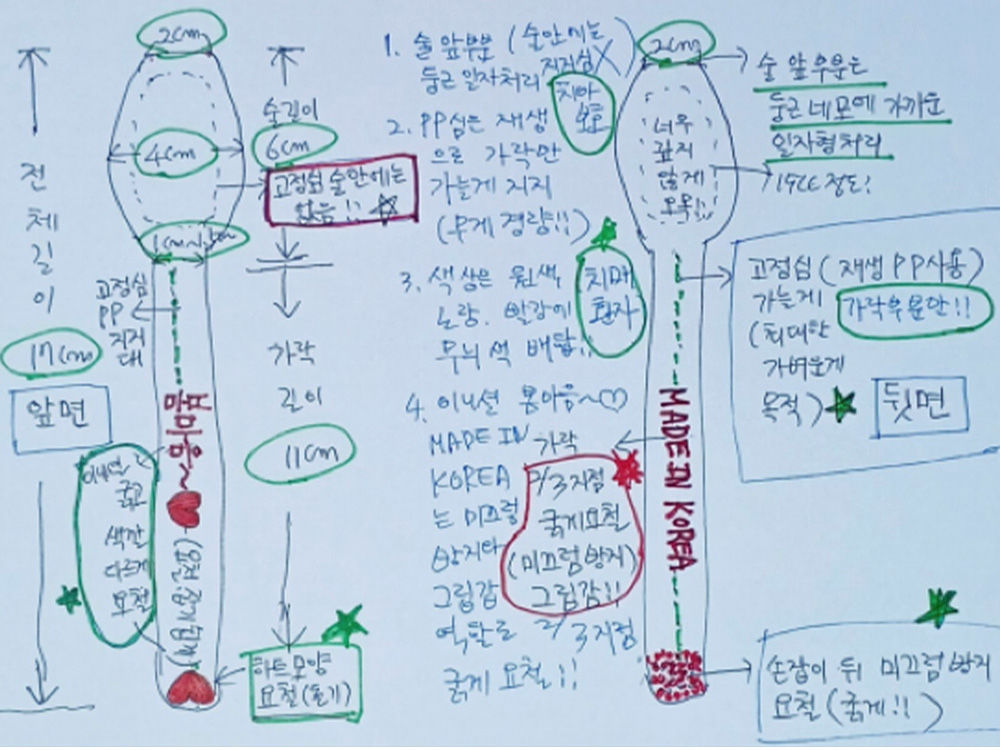 2cm
전
체
길
이
17cm
앞면
4cm
술길이
6cm
고정심 술안에는
없음!!
고정심
PP
지지
대
가락
길이
11cm
봄마음~
이니셜
굵고
색깔
다르게
요철
하트모양
요철(돌기)
1. 술 앞부분 (술안에는
지지심X)
둥근 일자처리
치아
보호
2. PP심은 재생
으로 가락만
가늘게 지지
(무게 경량!!)
3. 색상은 원색
노랑. 빨강에
무늬 색 배합!!
치매
환자
4. 이니셜 봄마음~♡
MADE IN
KOREA
는 미끄럼
방지와
그립감
역할로 2/3지점
굵게 요철!!
가락
2/3지점
굵게요철
(미끄럼방지)
그립감!!
2cm
술 앞부분은
둥근 네모에 가까운
일자형처리
너무
깊지
않게
오목!!
15CC 정도!
고정심 (재생 PP사용)
가늘게
가락부분만!!
(최대한
가벼웁게
목적)
뒷면
MADE IN KOREA
손잡이 뒤 미끄럼방지
요철(굵게!!)